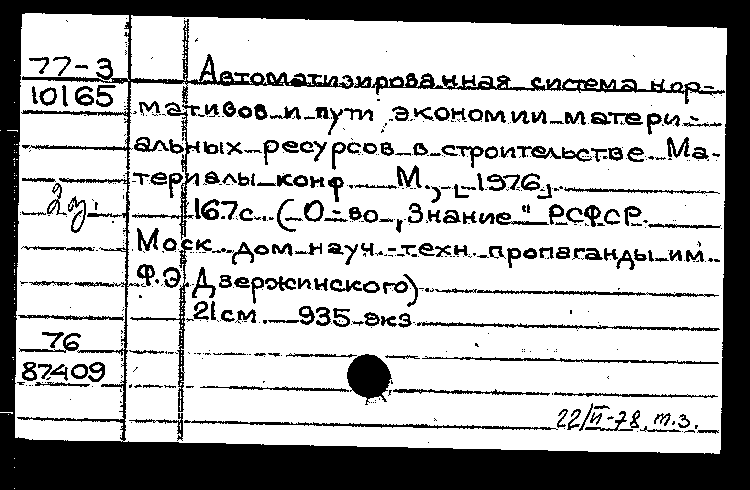 77-3
10165
Автоматизированная система нор-
мативов и пути экономии матери-
альных ресурсов в строительстве Ма-
териалы конф М., [1976].
2 э.
167с. (О-во „Знание" РСФСР.
Моск. дом науч.-техн. пропаганды им.
Ф.Э.Дзержинского)
21см. 935 экз
76
87409
22/II-78. т.з.